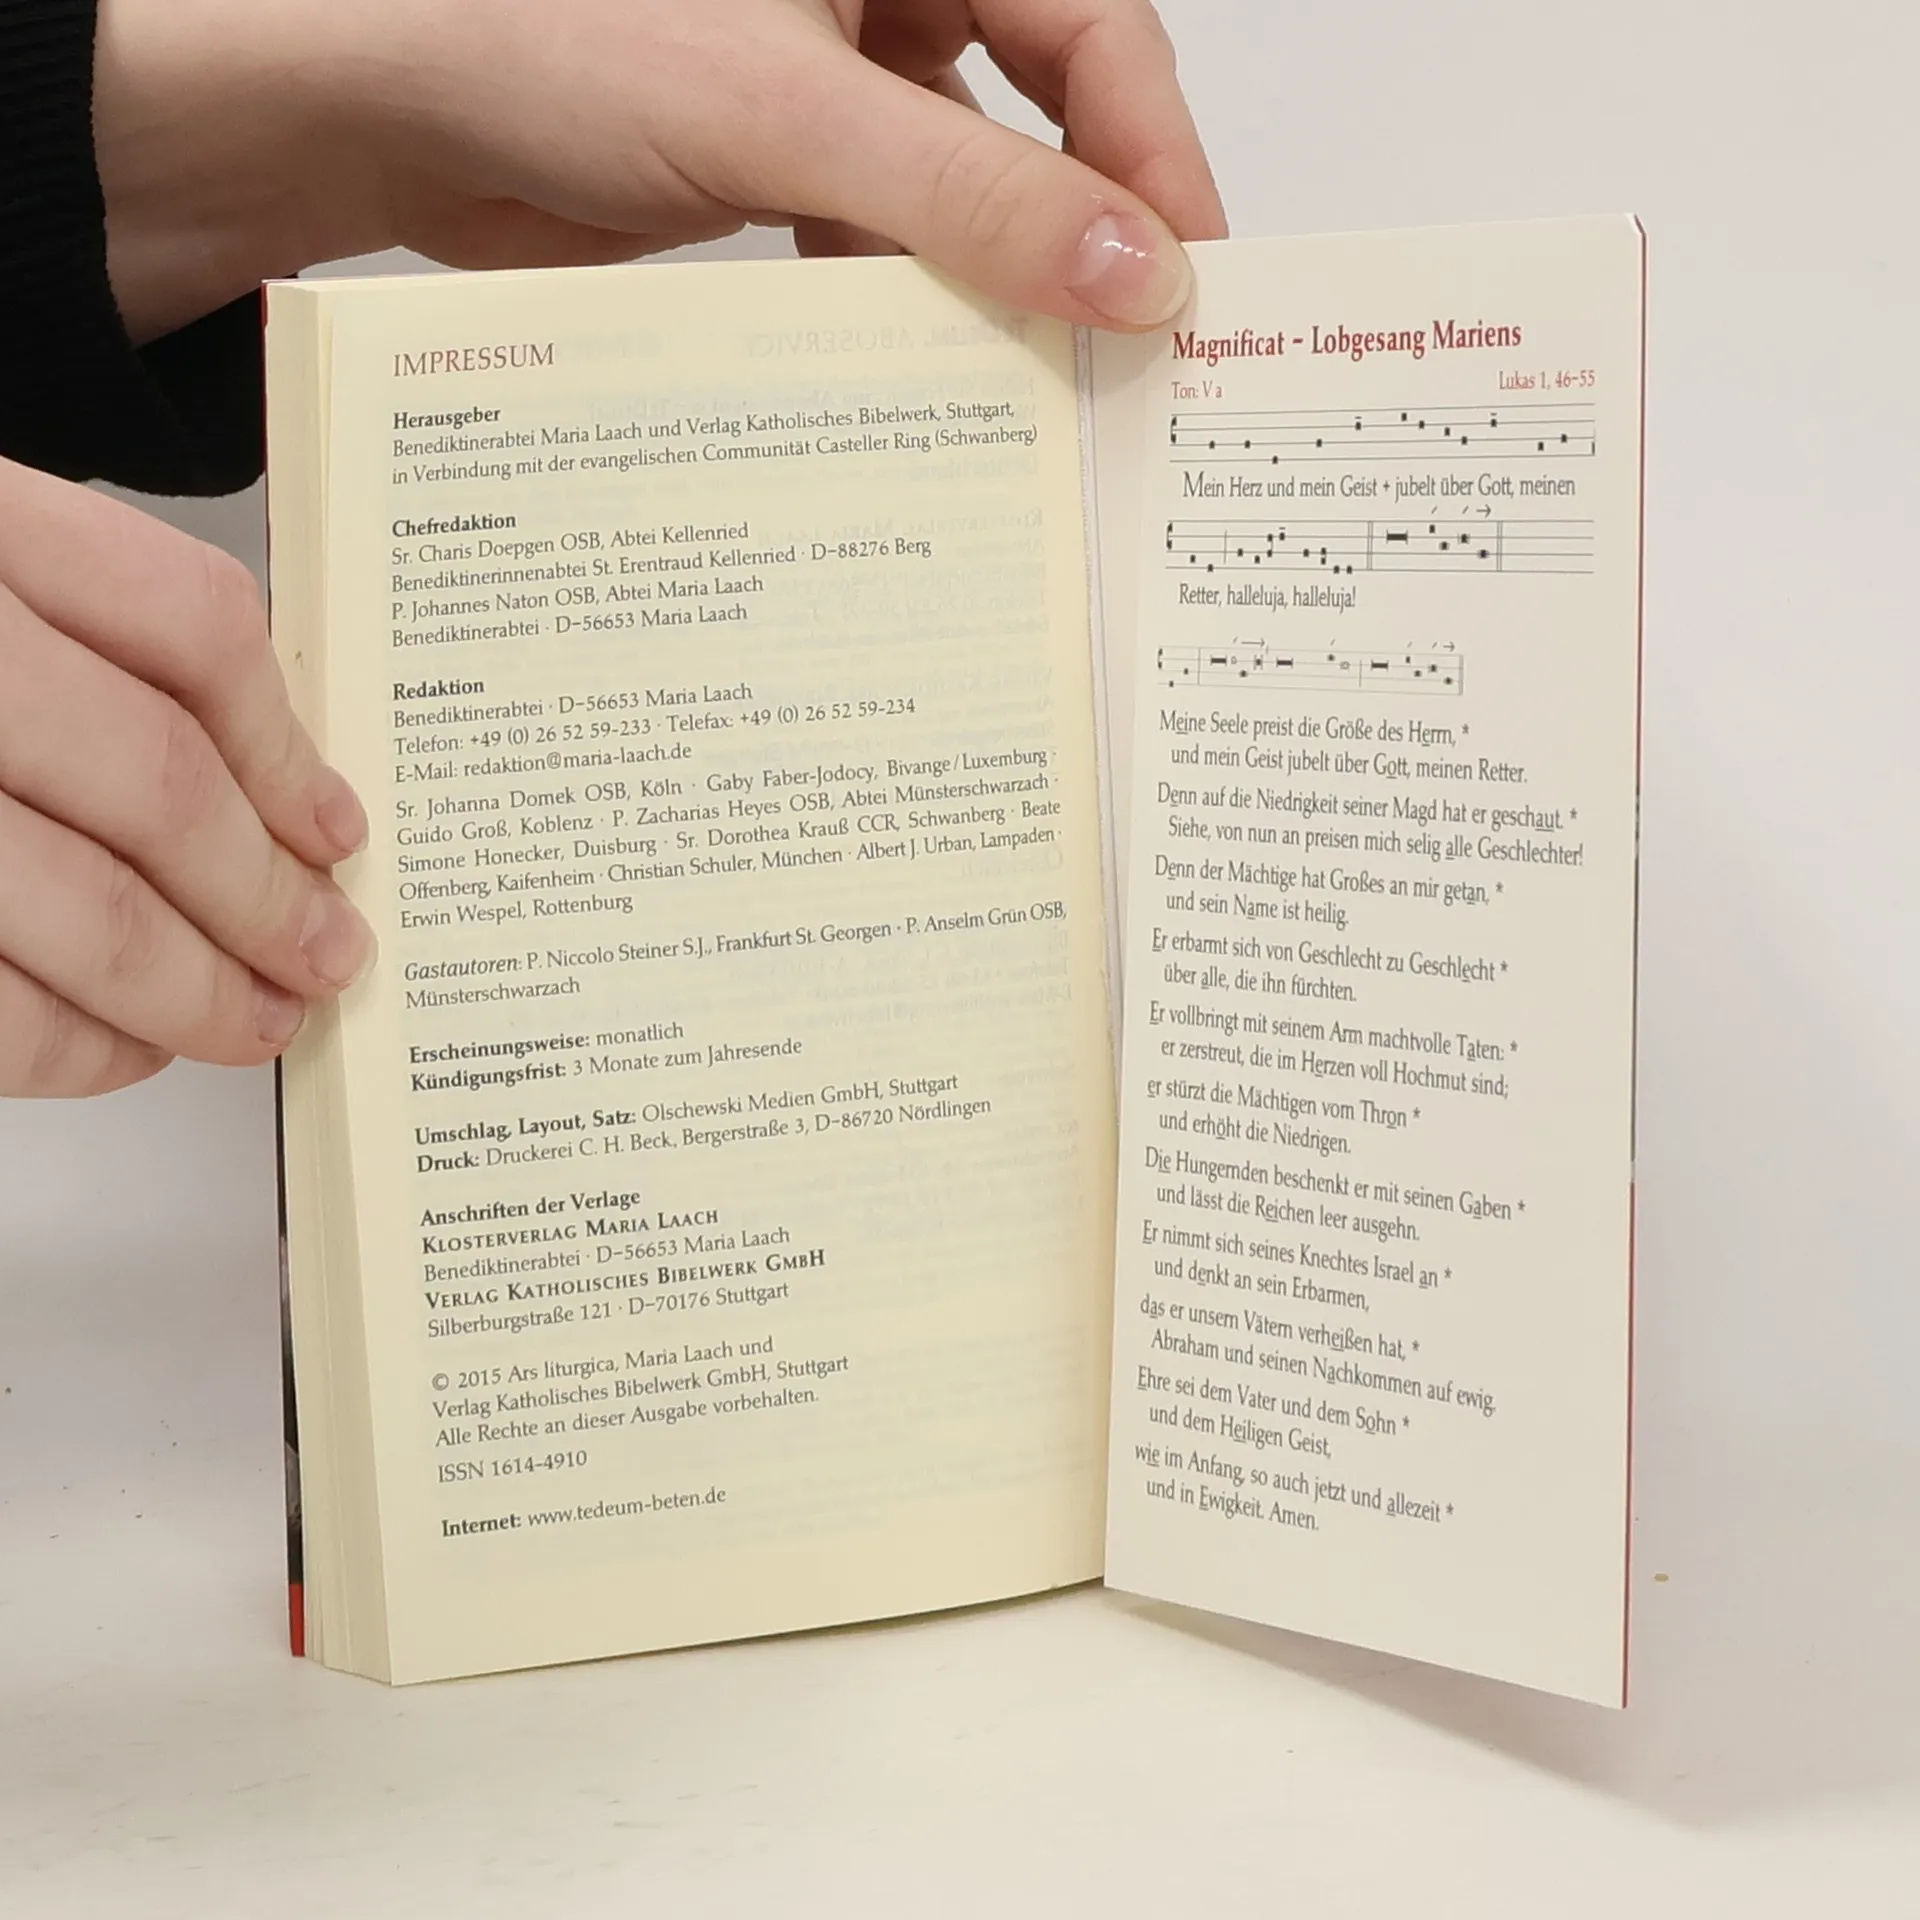 IMPRESSUM
Herausgeber
Benediktinerabtei Maria Laach und Verlag Katholisches Bibelwerk, Stuttgart,
in Verbindung mit der evangelischen Communität Casteller Ring (Schwanberg)
Chefredaktion
Sr. Charis Doepgen OSB, Abtei Kellenried
Benediktinerinnenabtei St. Erentraud Kellenried · D–88276 Berg
P. Johannes Naton OSB, Abtei Maria Laach
Benediktinerabtei · D–56653 Maria Laach
Redaktion
Benediktinerabtei · D–56653 Maria Laach
Telefon: +49 (0) 26 52 59-233 · Telefax: +49 (0) 26 52 59-234
E-Mail: redaktion@maria-laach.de
Sr. Johanna Domek OSB, Köln · Gaby Faber-Jodocy, Bivange/Luxemburg ·
Guido Groß, Koblenz · P. Zacharias Heyes OSB, Abtei Münsterschwarzach ·
Simone Honecker, Duisburg · Sr. Dorothea Krauß CCR, Schwanberg · Beate
Offenberg, Kaifenheim · Christian Schuler, München · Albert J. Urban, Lampaden ·
Erwin Wespel, Rottenburg
Gastautoren: P. Niccolo Steiner S.J., Frankfurt St. Georgen · P. Anselm Grün OSB,
Münsterschwarzach
Erscheinungsweise: monatlich
Kündigungsfrist: 3 Monate zum Jahresende
Umschlag, Layout, Satz: Olschewski Medien GmbH, Stuttgart
Druck: Druckerei C. H. Beck, Bergerstraße 3, D–86720 Nördlingen
Anschriften der Verlage
KLOSTERVERLAG MARIA LAACH
Benediktinerabtei · D–56653 Maria Laach
VERLAG KATHOLISCHES BIBELWERK GMBH
Silberburgstraße 121 · D–70176 Stuttgart
© 2015 Ars liturgica, Maria Laach und
Verlag Katholisches Bibelwerk GmbH, Stuttgart
Alle Rechte an dieser Ausgabe vorbehalten.
ISSN 1614-4910
Internet: www.tedeum-beten.de
Magnificat – Lobgesang Mariens
Ton: V a Lukas 1, 46–55
Mein Herz und mein Geist + jubelt über Gott, meinen
Retter, halleluja, halleluja!
Meine Seele preist die Größe des Herrn, *
und mein Geist jubelt über Gott, meinen Retter.
Denn auf die Niedrigkeit seiner Magd hat er geschaut. *
Siehe, von nun an preisen mich selig alle Geschlechter!
Denn der Mächtige hat Großes an mir getan, *
und sein Name ist heilig.
Er erbarmt sich von Geschlecht zu Geschlecht *
über alle, die ihn fürchten.
Er vollbringt mit seinem Arm machtvolle Taten: *
er zerstreut, die im Herzen voll Hochmut sind;
er stürzt die Mächtigen vom Thron *
und erhöht die Niedrigen.
Die Hungernden beschenkt er mit seinen Gaben *
und lässt die Reichen leer ausgehn.
Er nimmt sich seines Knechtes Israel an *
und denkt an sein Erbarmen,
das er unsern Vätern verheißen hat, *
Abraham und seinen Nachkommen auf ewig.
Ehre sei dem Vater und dem Sohn *
und dem Heiligen Geist,
wie im Anfang, so auch jetzt und allezeit *
und in Ewigkeit. Amen.